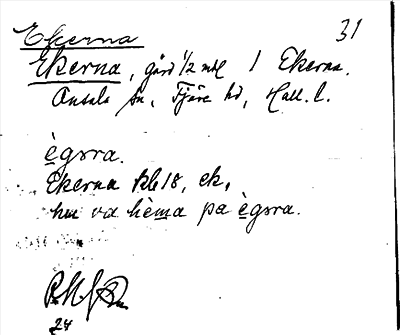 Ekerna 31
Ekerna, gård 1/2 mtl 1 Ekerna.
Onsala sn, Fjäre hd, Hall. l.
ègɘrra.
Ekerna kb 18, ek,
hu va hèma pa ègɘrra.
24